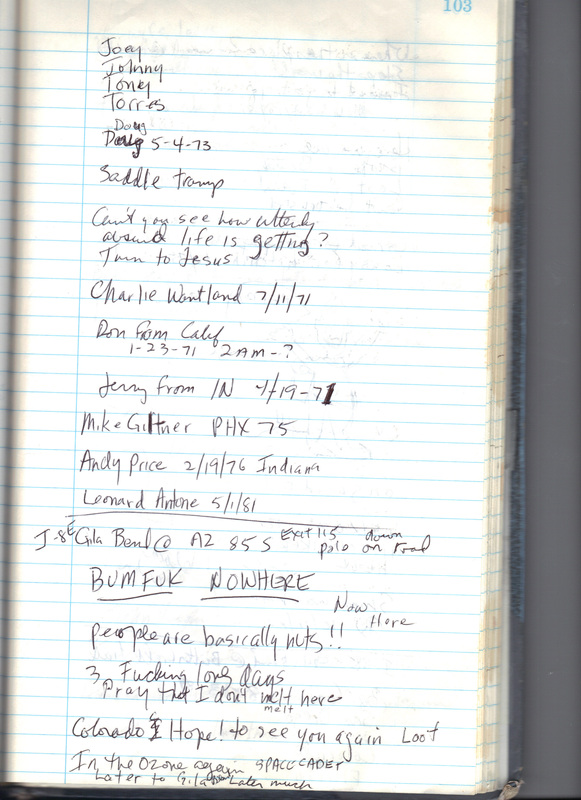 103
Joey
Johnny
Toney
Torres
Doug
Doug 5-4-73
Saddle tramp
Can't you see how utterly
absurd life is getting?
Turn to Jesus
Charlie Wantland 7/11/71
Ron from Calif
1-23-71 2AM-?
Jerry from IN 4/19-71
Mike Giltner PHX 75
Andy Price 2/19/76 Indiana
Leonard Antone 5/1/81
J-8E Gila Bend @ AZ 85 S Exit 115 down
pole on road
BUMFUK NOWHERE
Now Here
people are basically nuts!!
3 Fucking long days
Pray that I don't melt here
melt
Colorado I Hope! to see you again Loot
In the Ozone again SPACECADET
Later to Gila Later much